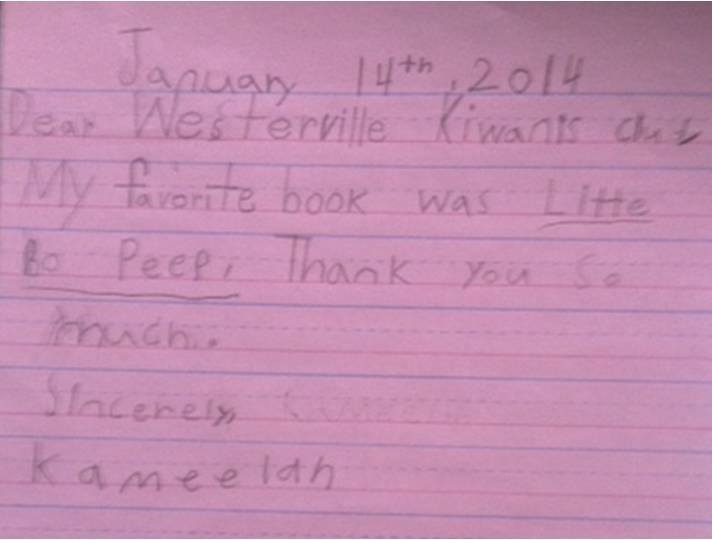 January 14th, 2014
Dear Westerville Kiwanis
My favorite book was Litte
Bo Peep. Thank you so
much.
Sincerely,
Kameelah